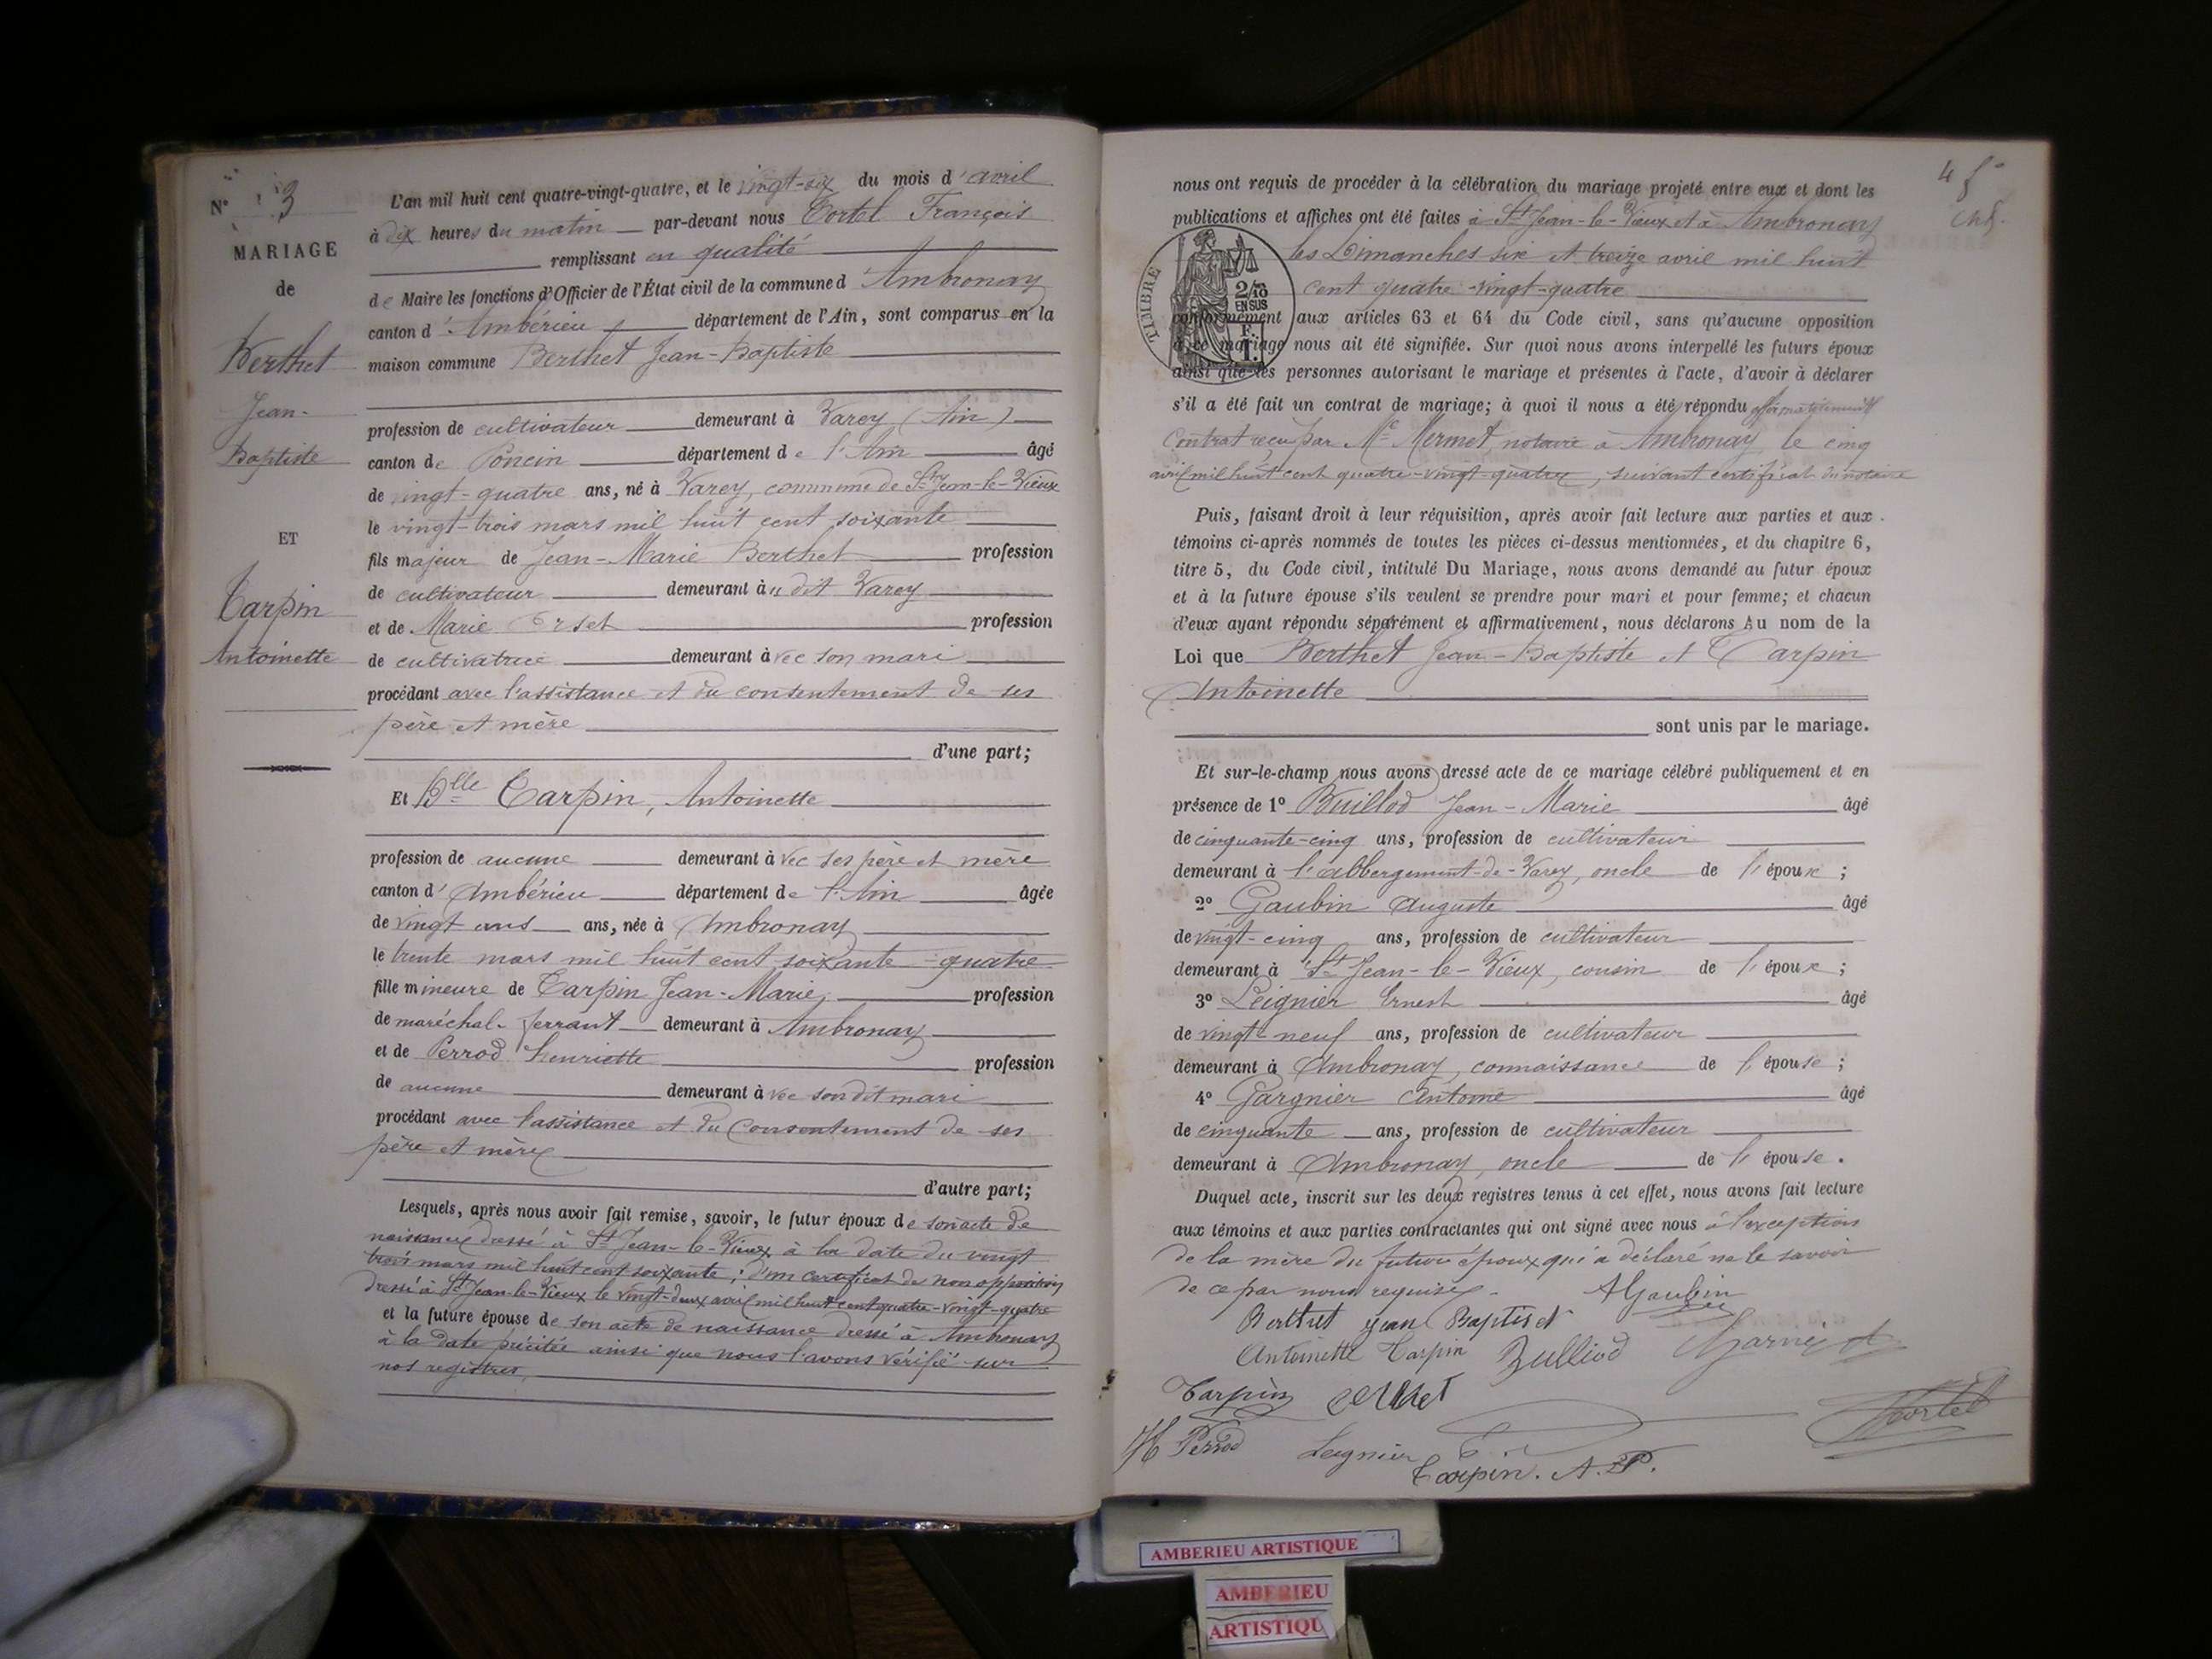 N° 3
MARIAGE
de
Berthet
Jean-
Baptiste
ET
Tarpin
Antoinette
L'an mil huit cent quatre-vingt-quatre, et le vingt-six du mois d'avril
à dix heures du matin par-devant nous Tortel François
remplissant en qualité
de Maire les fonctions d'Officier de l'État civil de la commune d'Ambronay
canton d'Ambérieu département de l'Ain, sont comparus en la
maison commune Berthet Jean-Baptiste
profession de cultivateur demeurant à Varey (Ain)
canton de Poncin département de l'Ain âgé
de vingt-quatre ans, né à Varey, commune de St Jean-le-Vieux
le vingt-trois mars mil huit cent soixante
fils majeur de Jean-Marie Berthet profession
de cultivateur demeurant au dit Varey
et de Marie Orset profession
de cultivatrice demeurant avec son mari
procédant avec l'assistance et du consentement de ses
père et mère
d'une part;
Et Dlle Tarpin, Antoinette
profession de aucune demeurant avec ses père et mère
canton d'Ambérieu département de l'Ain âgée
de vingt ans ans, née à Ambronay
le trente mars mil huit cent soixante-quatre
fille mineure de Tarpin Jean-Marie, profession
de maréchal-ferrant demeurant à Ambronay
et de Perrod henriette profession
de aucune demeurant avec son dit mari
procédant avec l'assistance et du Consentement de ses
père et mère
d'autre part;
Lesquels, après nous avoir fait remise, savoir, le futur époux de son acte de
naissance dressé à St Jean-le-Vieux à la date du vingt
trois mars mil huit cent soixante; d'un certificat de non opposition
dressé à St Jean-le-Vieux le vingt-deux avril mil huit cent quatre-vingt-quatre
et la future épouse de son acte de naissance dressé à Ambronay
à la date précitée ainsi que nous l'avons vérifié sur
nos registres,
4
nous ont requis de procéder à la célébration du mariage projeté entre eux et dont les
publications et affiches ont été faites à St Jean-le-Vieux et à Ambronay
les Dimanches six et treize avril mil huit
cent quatre-vingt-quatre
TIMBRE
2/10
EN SUS
F.
1.
conformément aux articles 63 et 64 du Code civil, sans qu'aucune opposition
à ce mariage nous ait été signifiée. Sur quoi nous avons interpellé les futurs époux
ainsi que les personnes autorisant le mariage et présentes à l'acte, d'avoir à déclarer
s'il a été fait un contrat de mariage; à quoi il nous a été répondu affirmativement
Contrat reçu par Me Mermet, notaire à Ambronay, le cinq
avril mil huit cent quatre-vingt-quatre, suivant certificat du notaire
Puis, faisant droit à leur réquisition, après avoir fait lecture aux parties et aux
témoins ci-après nommés de toutes les pièces ci-dessus mentionnées, et du chapitre 6,
titre 5, du Code civil, intitulé Du Mariage, nous avons demandé au futur époux
et à la future épouse s'ils veulent se prendre pour mari et pour femme; et chacun
d'eux ayant répondu séparément et affirmativement, nous déclarons Au nom de la
Loi que Berthet Jean-Baptiste et Tarpin
Antoinette
sont unis par le mariage.
Et sur-le-champ nous avons dressé acte de ce mariage célébré publiquement et en
présence de 1° Buillod Jean-Marie âgé
de cinquante-cinq ans, profession de cultivateur
demeurant à l'abbergement-de-Varey, oncle de l'époux;
2° Gaubin Auguste âgé
de vingt-cinq ans, profession de cultivateur
demeurant à St Jean-le-Vieux, cousin de l'époux;
3° Leignier Ernest âgé
de vingt-neuf ans, profession de cultivateur
demeurant à Ambronay, connaissance de l'épouse;
4° Gargnier Antoine âgé
de cinquante ans, profession de cultivateur
demeurant à Ambronay, oncle de l'épouse.
Duquel acte, inscrit sur les deux registres tenus à cet effet, nous avons fait lecture
aux témoins et aux parties contractantes qui ont signé avec nous à l'exception
de la mère du futur époux qui a déclaré ne le savoir
de ce par nous requise.
AGaubin
Berthet jean Baptiset
Antoinette Tarpin Bulliod
Tarpin
H Perrod Leignier Tortel
Tarpin. A. P.
AMBERIEU ARTISTIQUE
AMBERIEU
ARTISTIQU